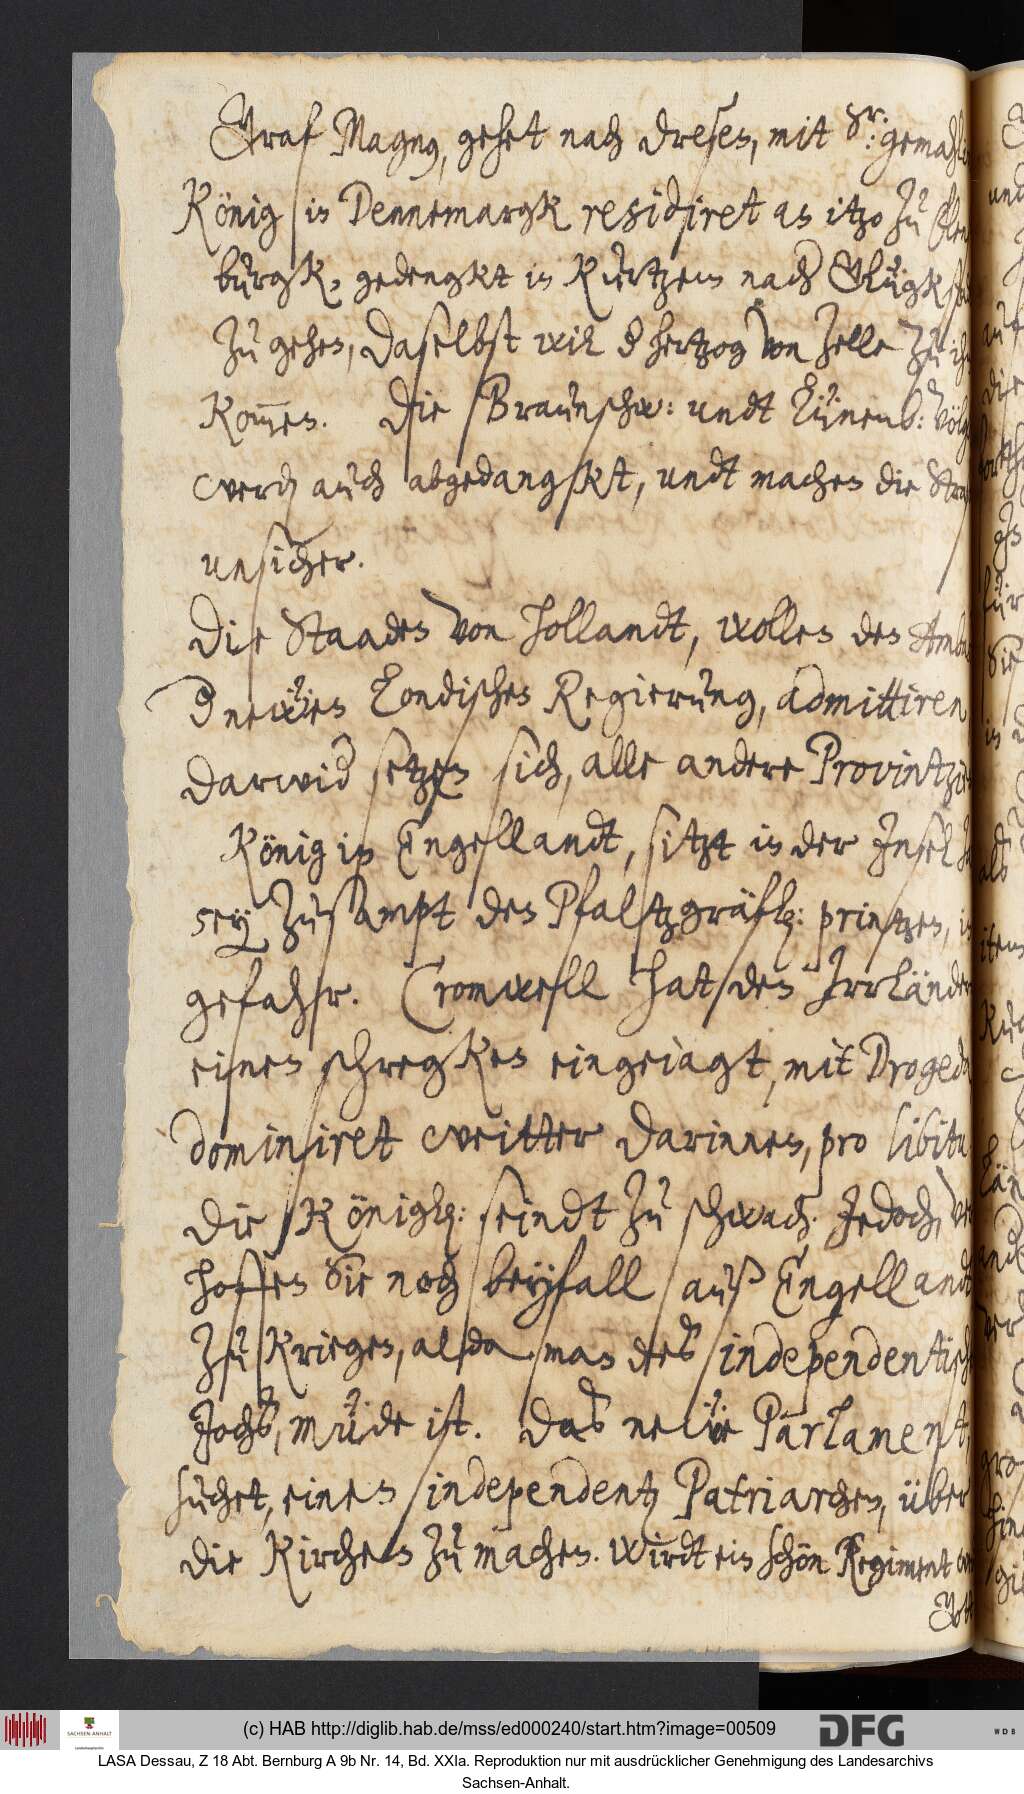 Graf Magnus, gehet nach Dresen, mit Sr: gemahlin
König in Dennemargk residiret an itzo zu Flens
burgk, gedengkt in Kurtzem nach Glügkstadt
zu gehen, daselbst wil d hertzog von Zelle zu ihm
Kom̅en. Die Braunschw: undt Lünenb: Völgker
werden auch abgedangkt, undt machen die Straßen
unsicher.
Die Staaden von Hollandt, wollen den Ambassador
d newen Londischen Regierung, admittiren
darwid setzen sich, alle andere Provintzien
König in Engellandt, sitzt in der Insel
sey zusampt den Pfaltzgräfl: printzen, in
gefahr. Cromwell hat den Irrländern
einen schregken eingeiagt, mit Drogeda
dominiret weitter darinnen, pro libitu
die Königl: seindt zu schwach. Jedoch, ver
hoffen Sie noch beyfall auß Engellandt
zu kriegen, alda man des independentischen
Jochs, müde ist. Das newe Parlament,
suchet, einen independenten Patriarchen, über
die Kirchen zu machen. Wirdt ein schön Regiment
(c) HAB http://diglib.hab.de/mss/ed000240/start.htm?image=00509
DFG
WDB
SACHSEN-ANHALT
LASA Dessau, Z 18 Abt. Bernburg A 9b Nr. 14, Bd. XXIa. Reproduktion nur mit ausdrücklicher Genehmigung des Landesarchivs
Sachsen-Anhalt.